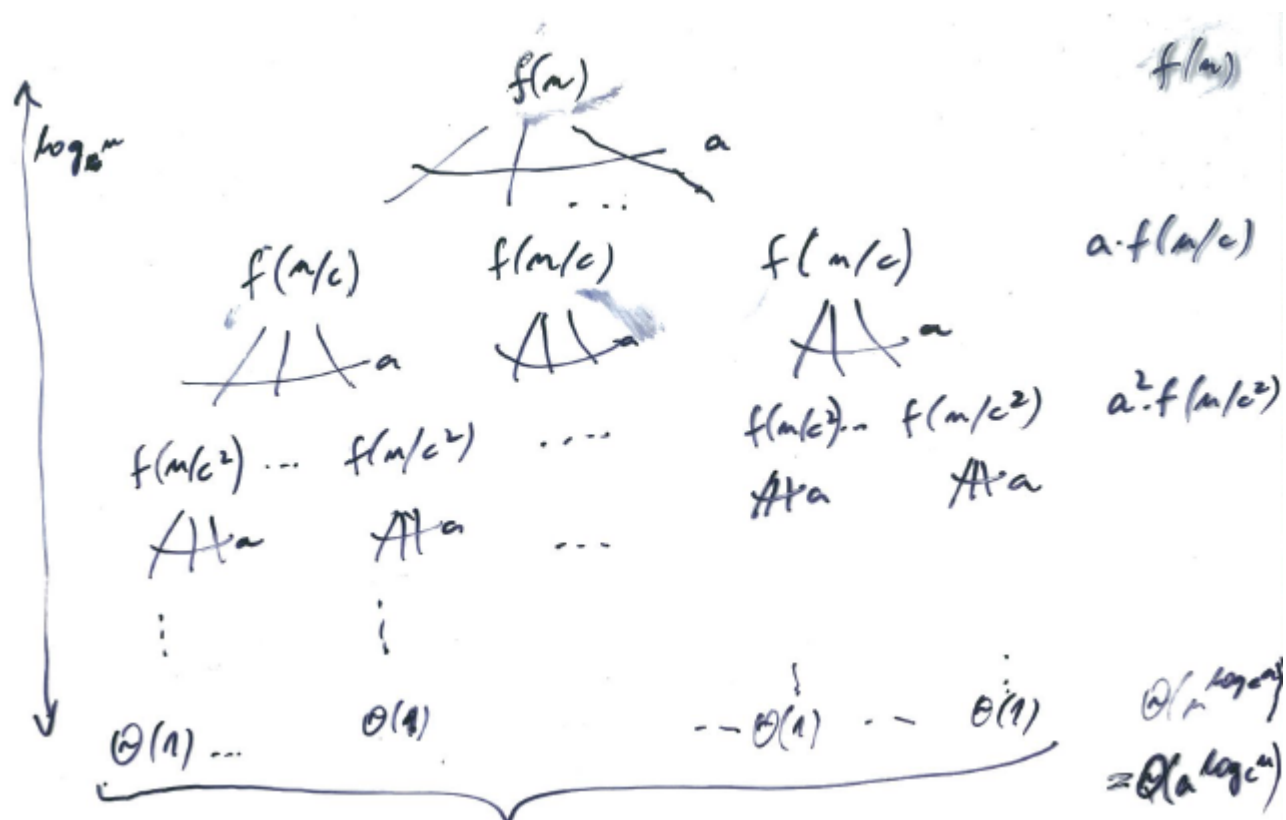 f(n) f(n)
a
...
f(n/c) f(n/c) f(n/c) a·f(n/c)
a a a
f(n/c²) ... f(n/c²) .... f(n/c²) ... f(n/c²) a²·f(n/c²)
a a ... a a
Θ(1) ... Θ(1) --- Θ(1) -- Θ(1)
= Θ(a^log_c n)